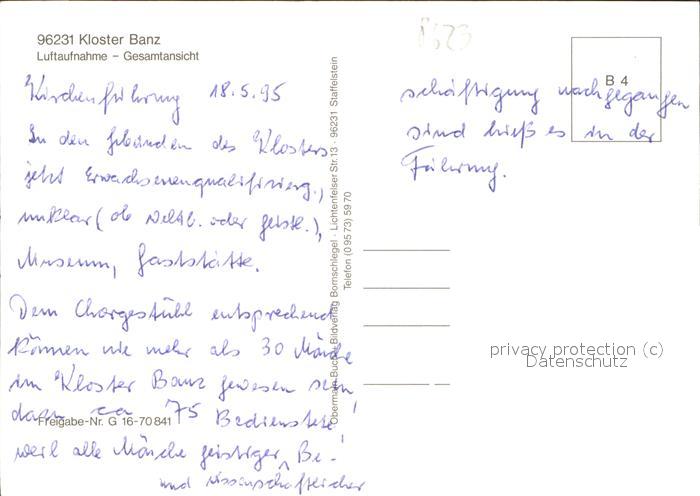 96231 Kloster Banz
Luftaufnahme – Gesamtansicht
Kirchenführung 18.5.95
In den Gebäuden des Klosters
jetzt Erwachsenenqualifizierg.,
unklar (ob weltl. oder geistl.),
Museum, Gaststätte.
Dem Chorgestühl entsprechend
können nie mehr als 30 Mönche
im Kloster Banz gewesen sein
dazu ca 75 Bedienstete!
Freigabe-Nr. G 16-70 841
weil alle Mönche geistiger Be-
und wissenschaftlicher
Obermain Buch- Bildverlag Bornschlegel · Lichtenfelser Str. 13 · 96231 Staffelstein
Telefon (0 95 73) 59 70
B 4
schäftigung nachgegangen
sind hieß es in der
Führung.
privacy protection (c)
Datenschutz